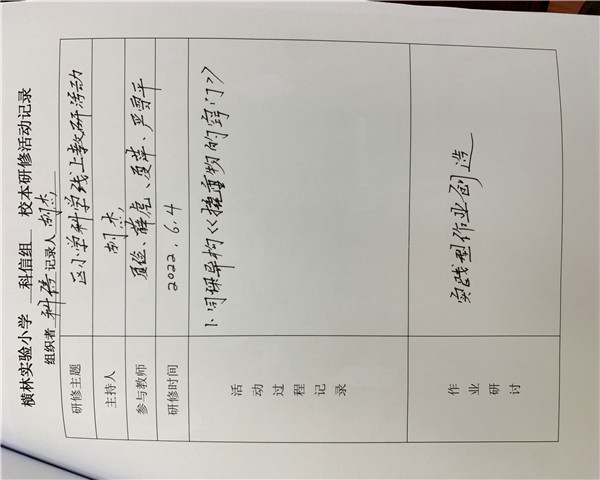 横林实验小学 科信组 校本研修活动记录
组织者 科信 记录人
研修主题 区小学科学线上教研活动
主持人
参与教师 夏俭、薛虎、夏萍、严雪平
研修时间 2022.6.4
活动过程记录 1、同课异构《搬重物的窍门》
作业研讨 实践型作业创造